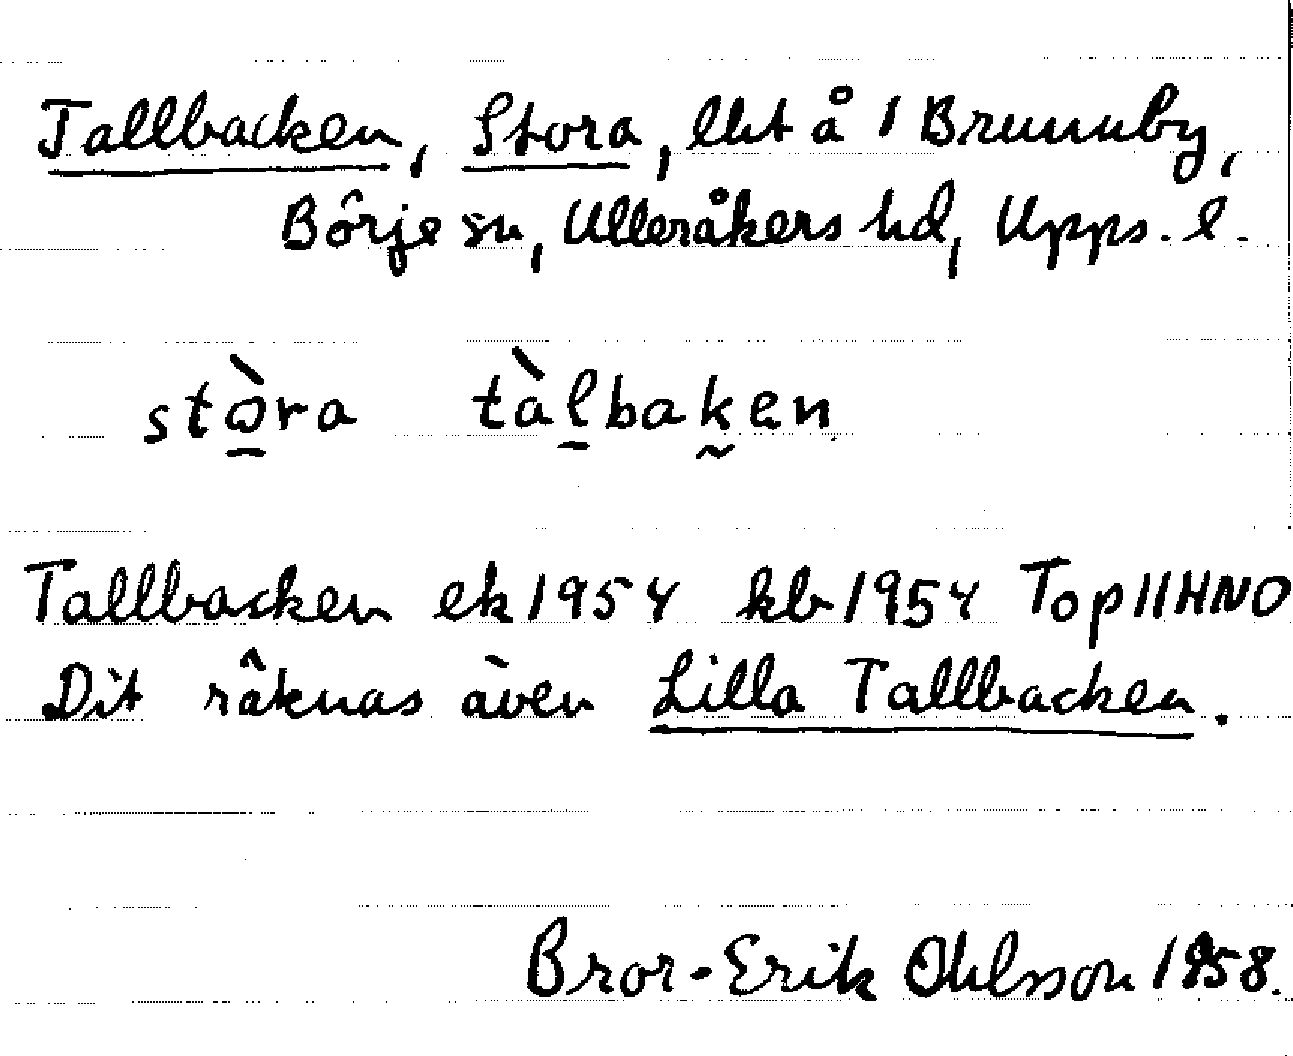 Tallbacken, Stora, lht å 1 Brunnby,
Börje sn, Ulleråkers hd, Upps. l.
stò̱ra tàḻbak̰en
Tallbacken ek 1954 kb 1954 Top 11HNO
Dit räknas även Lilla Tallbacken.
Bror-Erik Ohlsson 1958.